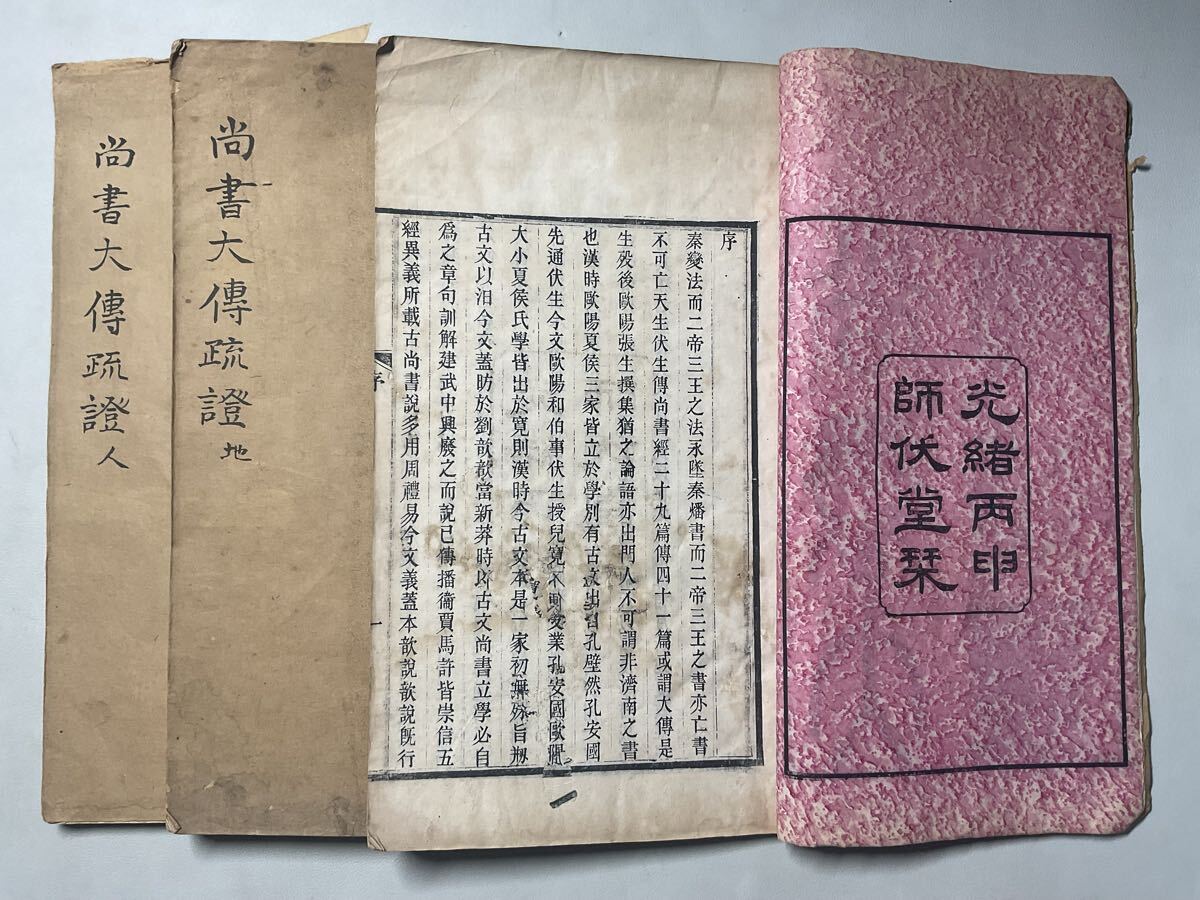 光緒丙申
師伏堂栞
序
秦變法而二帝三王之法永墜秦燔書而二帝三王之書亦亡書
不可亡天生伏生傳尚書經二十九篇傳四十一篇或謂大傳是
生歿後歐陽張生撰集猶之論語亦出門人不可謂非濟南之書
也漢時歐陽夏侯三家皆立於學別有古文出自孔壁然孔安國
先通伏生今文歐陽和伯事伏生授兒寬受業孔安國歐陽
大小夏侯氏學皆出於寬則漢時今古文本是一家初無殊旨剏
古文以汨今文蓋昉於劉歆歆當新莽時以古文尚書立學必自
爲之章句訓解建武中興廢之而說已傳播衞賈馬許皆崇信五
經異義所載古尚書說多用周禮易今文義蓋本歆說歆說旣行
序
一
尚書大傳疏證 地
尚書大傳疏證 人